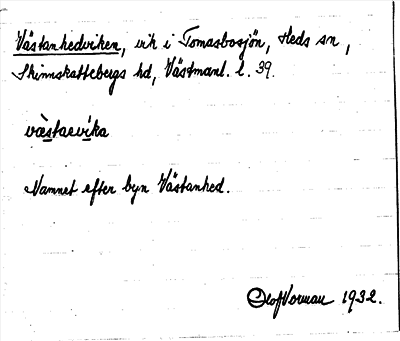 Västanhedviken, vik i Tomasbosjön, Heds sn,
Skinnskattebergs hd, Västmanl. l. 39.
væ̀staevi̇ka
Namnet efter byn Västanhed.
Olof Norman 1932.